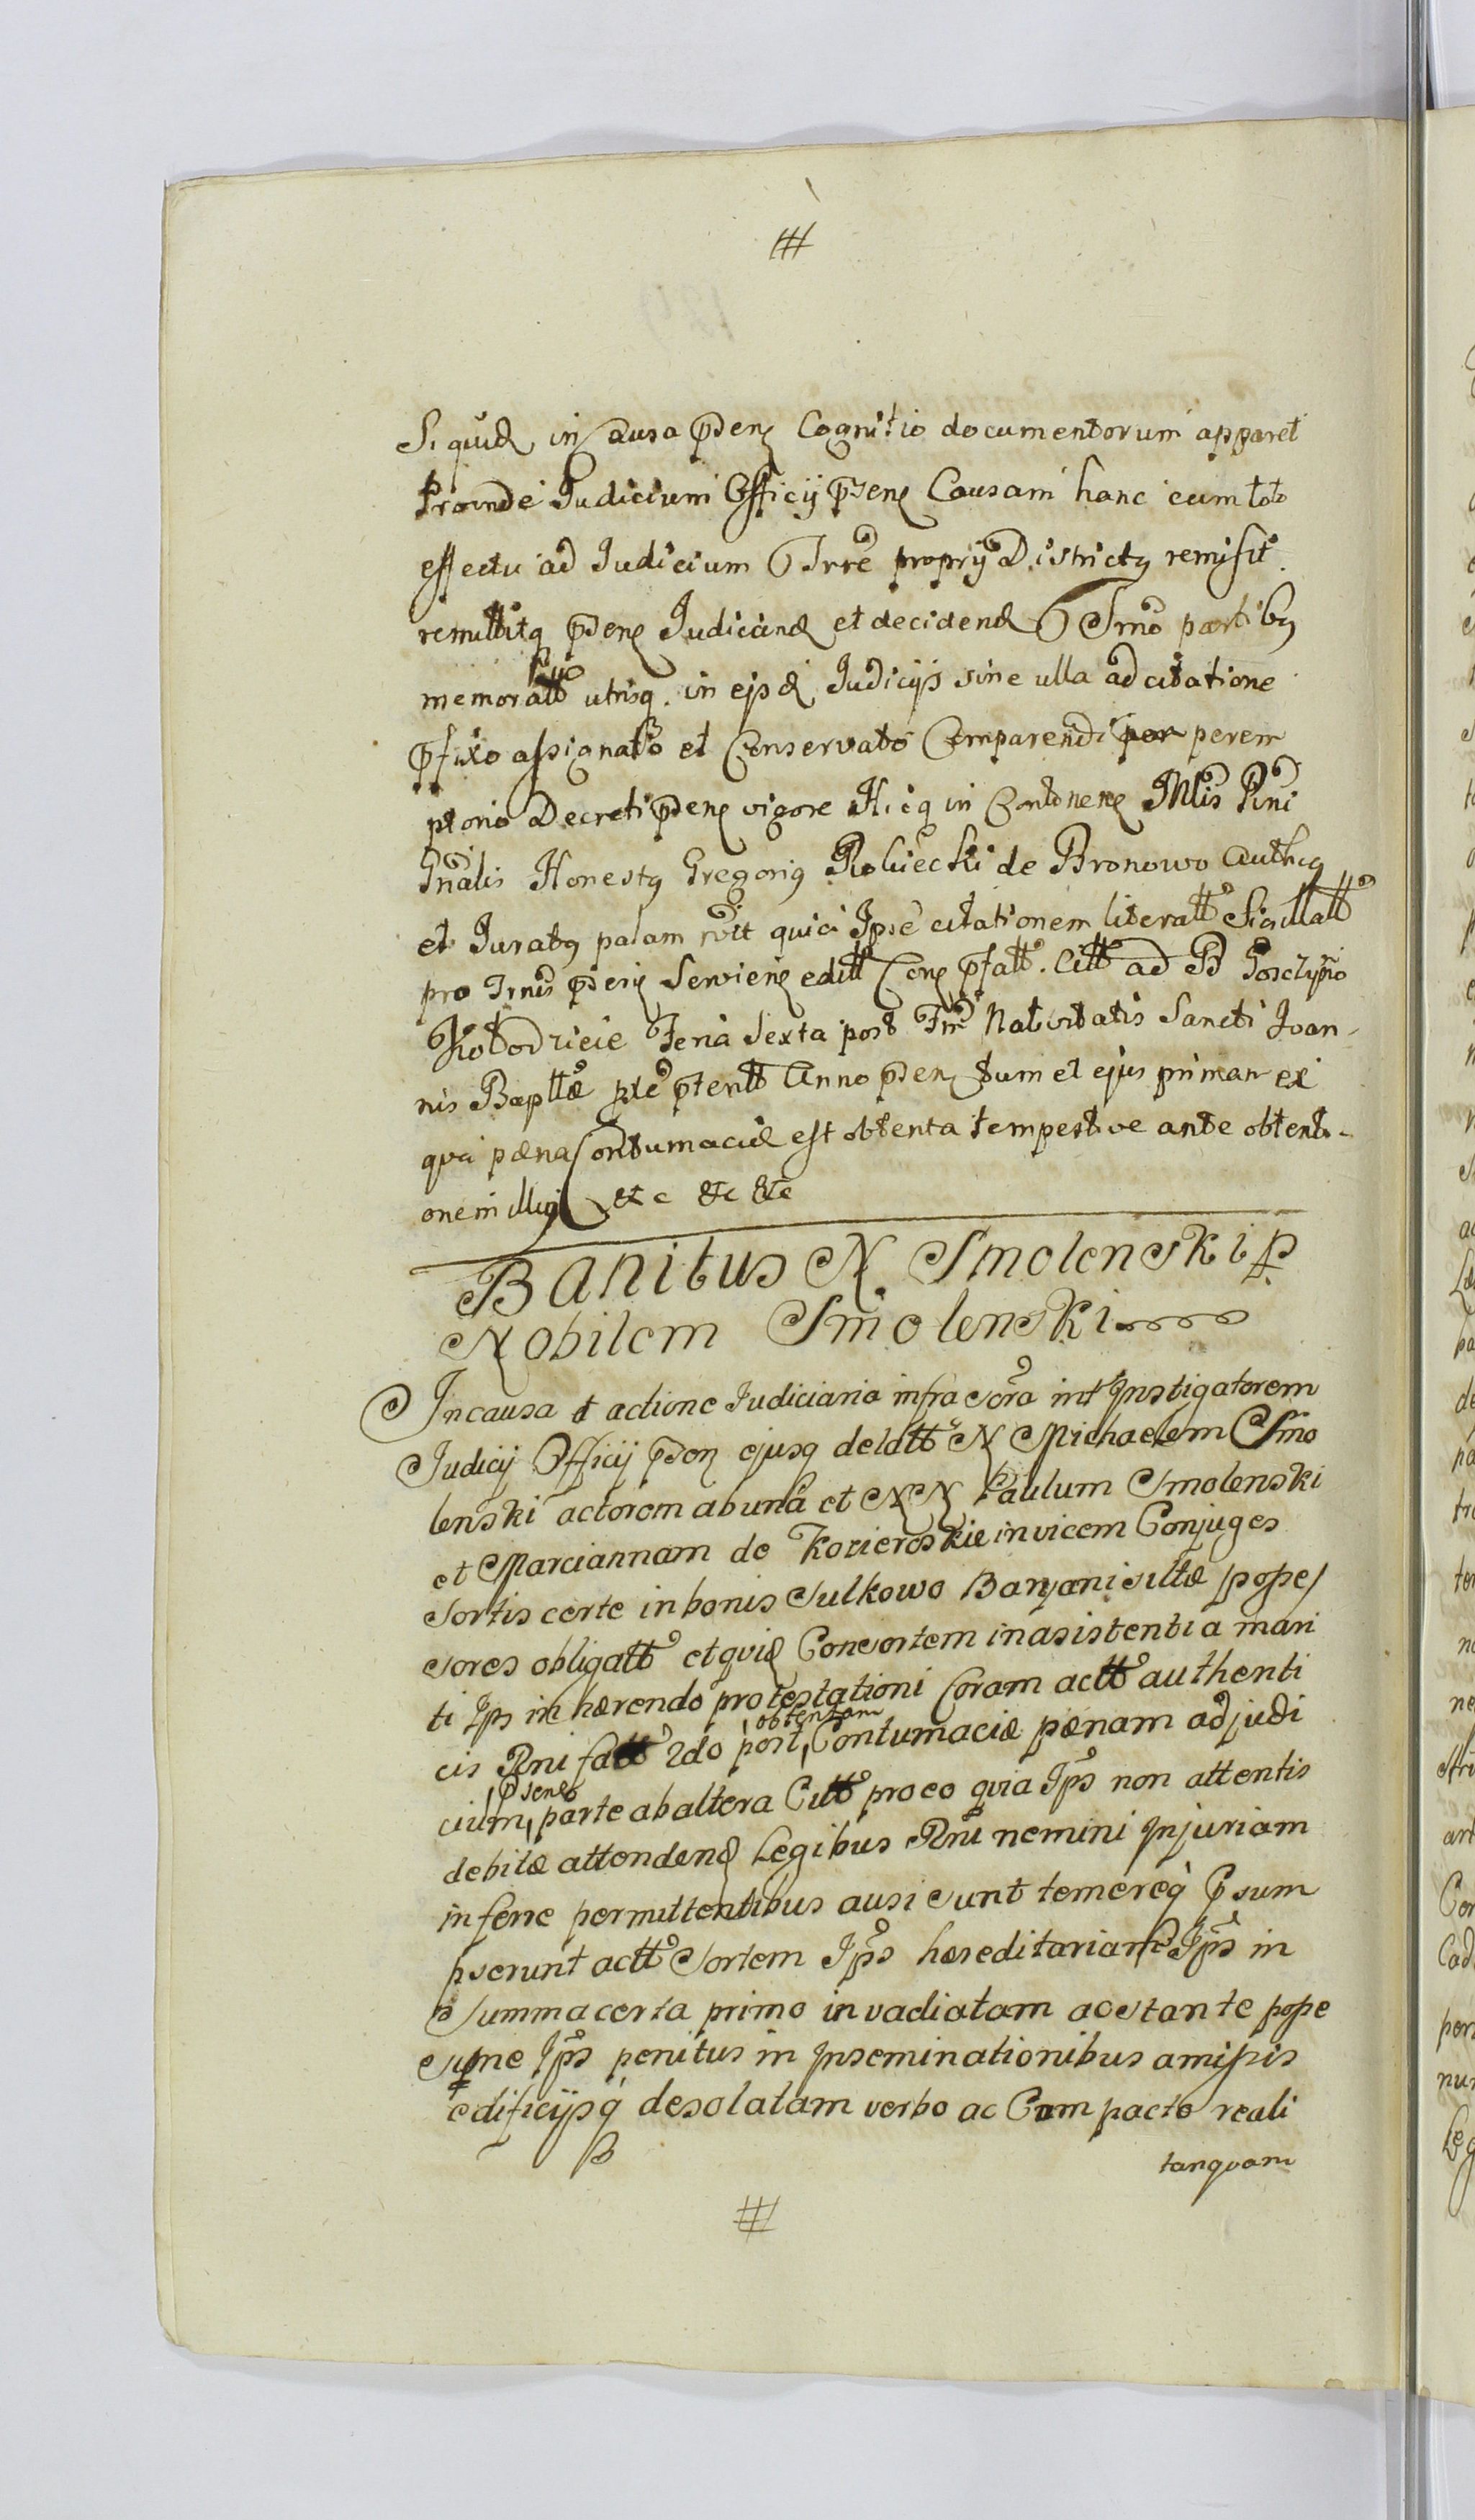 Siquid in Causa pñden Cognitio documentorum apparet
Proinde Judicium Officij pñsens Causam hanc cum toto
effectu ad Judicium Trrē proprij Districtq remisit
remittitq pñdens Judicand et decidend Tmo partibq
memoratt utrisq. in ejsd Judicijs sine ulla adcitatione
pfixo assignato et Conservato Comparendi per perem
ptorio Decreti pñsens vigore Hicq in Contnens Mlis Rni
Gnalis Honestq Gregoriq Robiecki de Bronowo Authcq
et Juratq palam rvit quia Ipse citationem literatt Sigillatt
pro Trnis pñdens Serviens editt Cone pfatt. Citt ad B Goslypio
Kołodzieie Feria Sexta post Fm Nativitatis Sancti Joan-
nis Baptæ pxē pterit Anno pñden tum et ejus priman ex
qua pæna Contumaciæ est obtenta tempestive ante obtenti-
onem illius etc etc etc
Banitus N. Smolenski p
Nobilem Smolenski
In causa et actione Judiciaria infra Scra int Instigatorem
Judicij Officij pñden ejusq delatt N Michaelem Smo
lenski actorem ab una et NN Paulum Smolenski
et Mariannam de Kozieroskie invicem Conjuges
Sortis certe in bonis Sulkowo Barzani sittæ posse
sores obligatt et quid Consortem in asistentia mari
ti Ips in hærendo protestationi Coram actt authenti
cis Rni fatt 2do post obtentam Contumaciæ pænam adjudi
cium pñsens parte ab altera Citt pro eo quia Ips non attentis
debitæ attendend Legibus Rni nemini Injuriam
inferre permittentibus ausi sunt temereq Psum
pserunt actt Sortem Ips hæreditariam Ips in
Summa certa primo in vadiatam ac stante posse
sione Ips penitus in Inseminationibus amissis
edificijsq desolatam verbo ac Compacto reali
tanquam